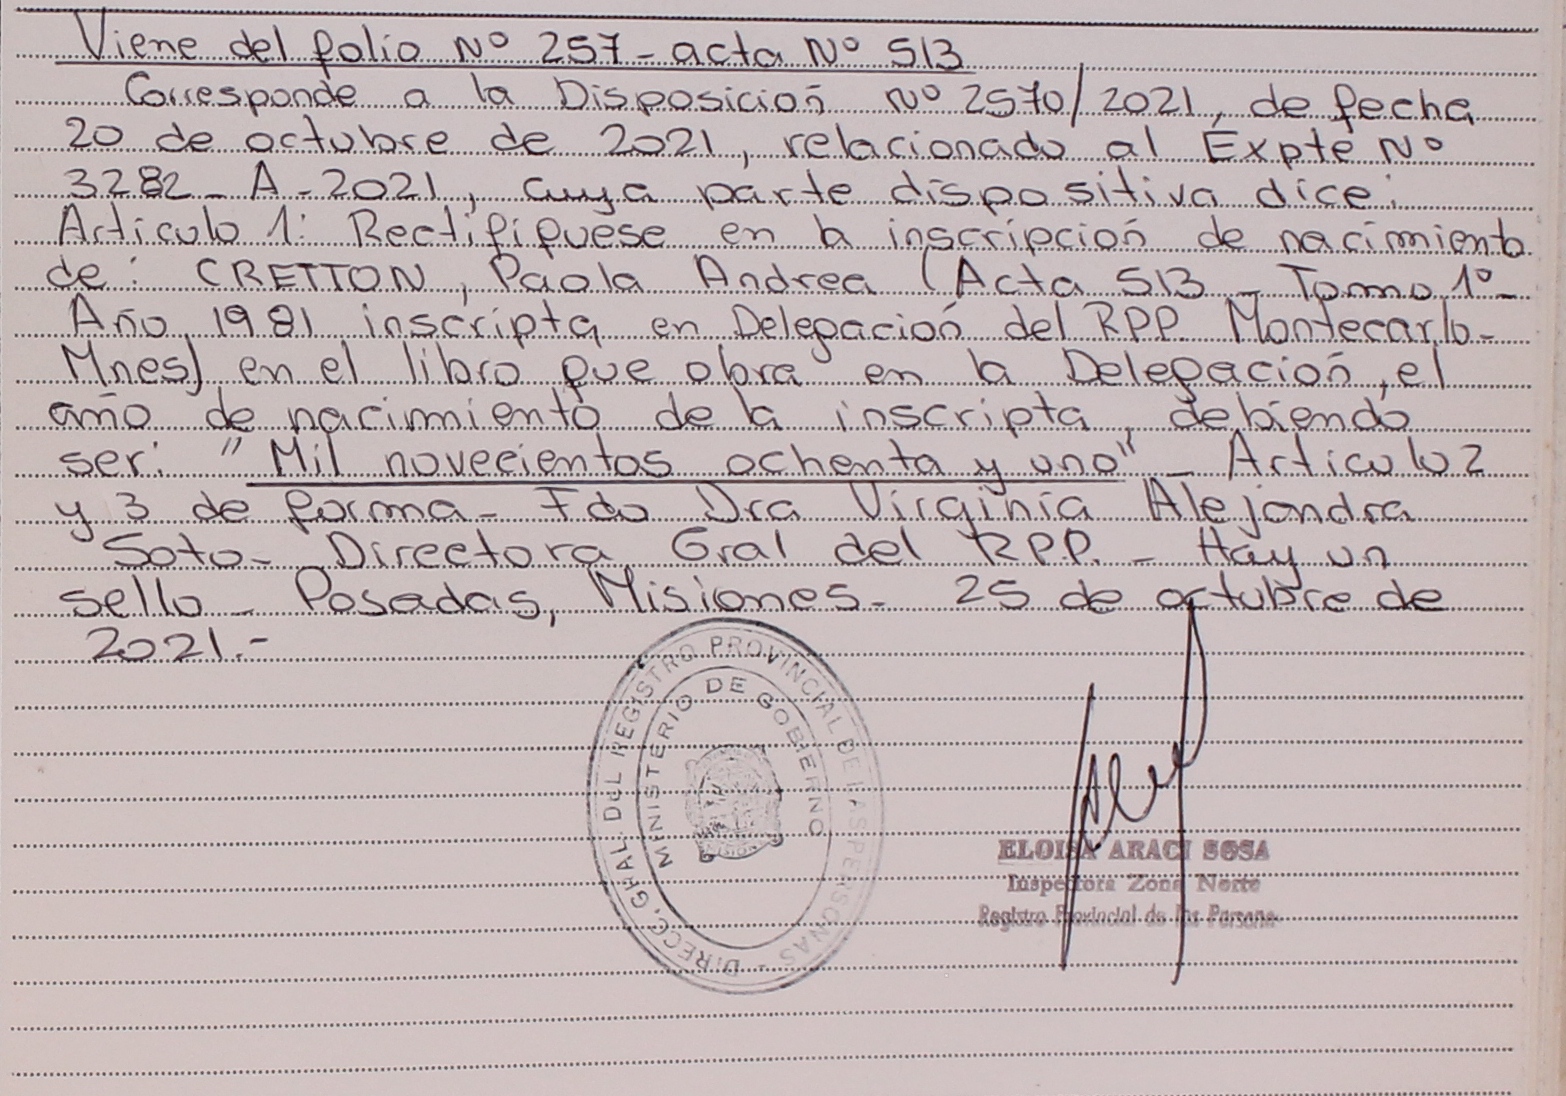 Viene del folio Nº 257 - acta Nº 513
Corresponde a la Disposición Nº 2570/2021, de fecha
20 de octubre de 2021, relacionado al Expte Nº
3282 - A - 2021, cuya parte dispositiva dice:
Articulo 1: Rectifiquese en la inscripción de nacimiento
de: CRETTON, Paola Andrea (Acta 513 - Tomo 1º -
Año 1981 inscripta en Delegación del RPP. Montecarlo -
Mnes) en el libro que obra en la Delegación, el
año de nacimiento de la inscripta, debiendo
ser: "Mil novecientos ochenta y uno" - Articulo 2
y 3 de forma - Fdo Dra Virginia Alejandra
Soto - Directora Gral del R.P.P. - Hay un
sello - Posadas, Misiones - 25 de octubre de
2021.-
DIRECC. GRAL. DEL REGISTRO PROVINCIAL DE LAS PERSONAS -
MINISTERIO DE GOBIERNO
ELOISA ARACI SOSA
Inspectora Zona Norte
Registro Provincial de las Persona